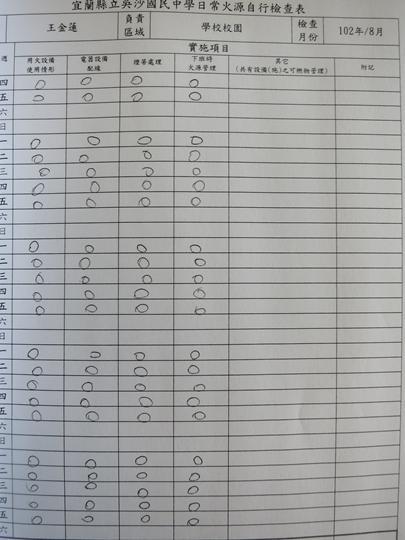 宜蘭縣立吳沙國民中學日常火源自行檢查表
王金蓮 負責區域 學校校園 檢查月份 102年/8月
實施項目
週 用火設備使用情形 電器設備配線 煙蒂處理 下班時火源管理 其它(共有設備(施)之可燃物管理) 附記
四 ○ ○ ○ ○
五 ○ ○ ○ ○
六
日
一 ○ ○ ○ ○
二 ○ ○ ○ ○
三 ○ ○ ○ ○
四 ○ ○ ○ ○
五 ○ ○ ○ ○
六
日
一 ○ ○ ○ ○
二 ○ ○ ○ ○
三 ○ ○ ○ ○
四 ○ ○ ○ ○
五 ○ ○ ○ ○
六
日
一 ○ ○ ○ ○
二 ○ ○ ○ ○
三 ○ ○ ○ ○
四 ○ ○ ○ ○
五 ○ ○ ○ ○
六
日
一 ○ ○ ○ ○
二 ○ ○ ○ ○
三 ○ ○ ○ ○
四 ○ ○ ○ ○
五 ○ ○ ○ ○
六